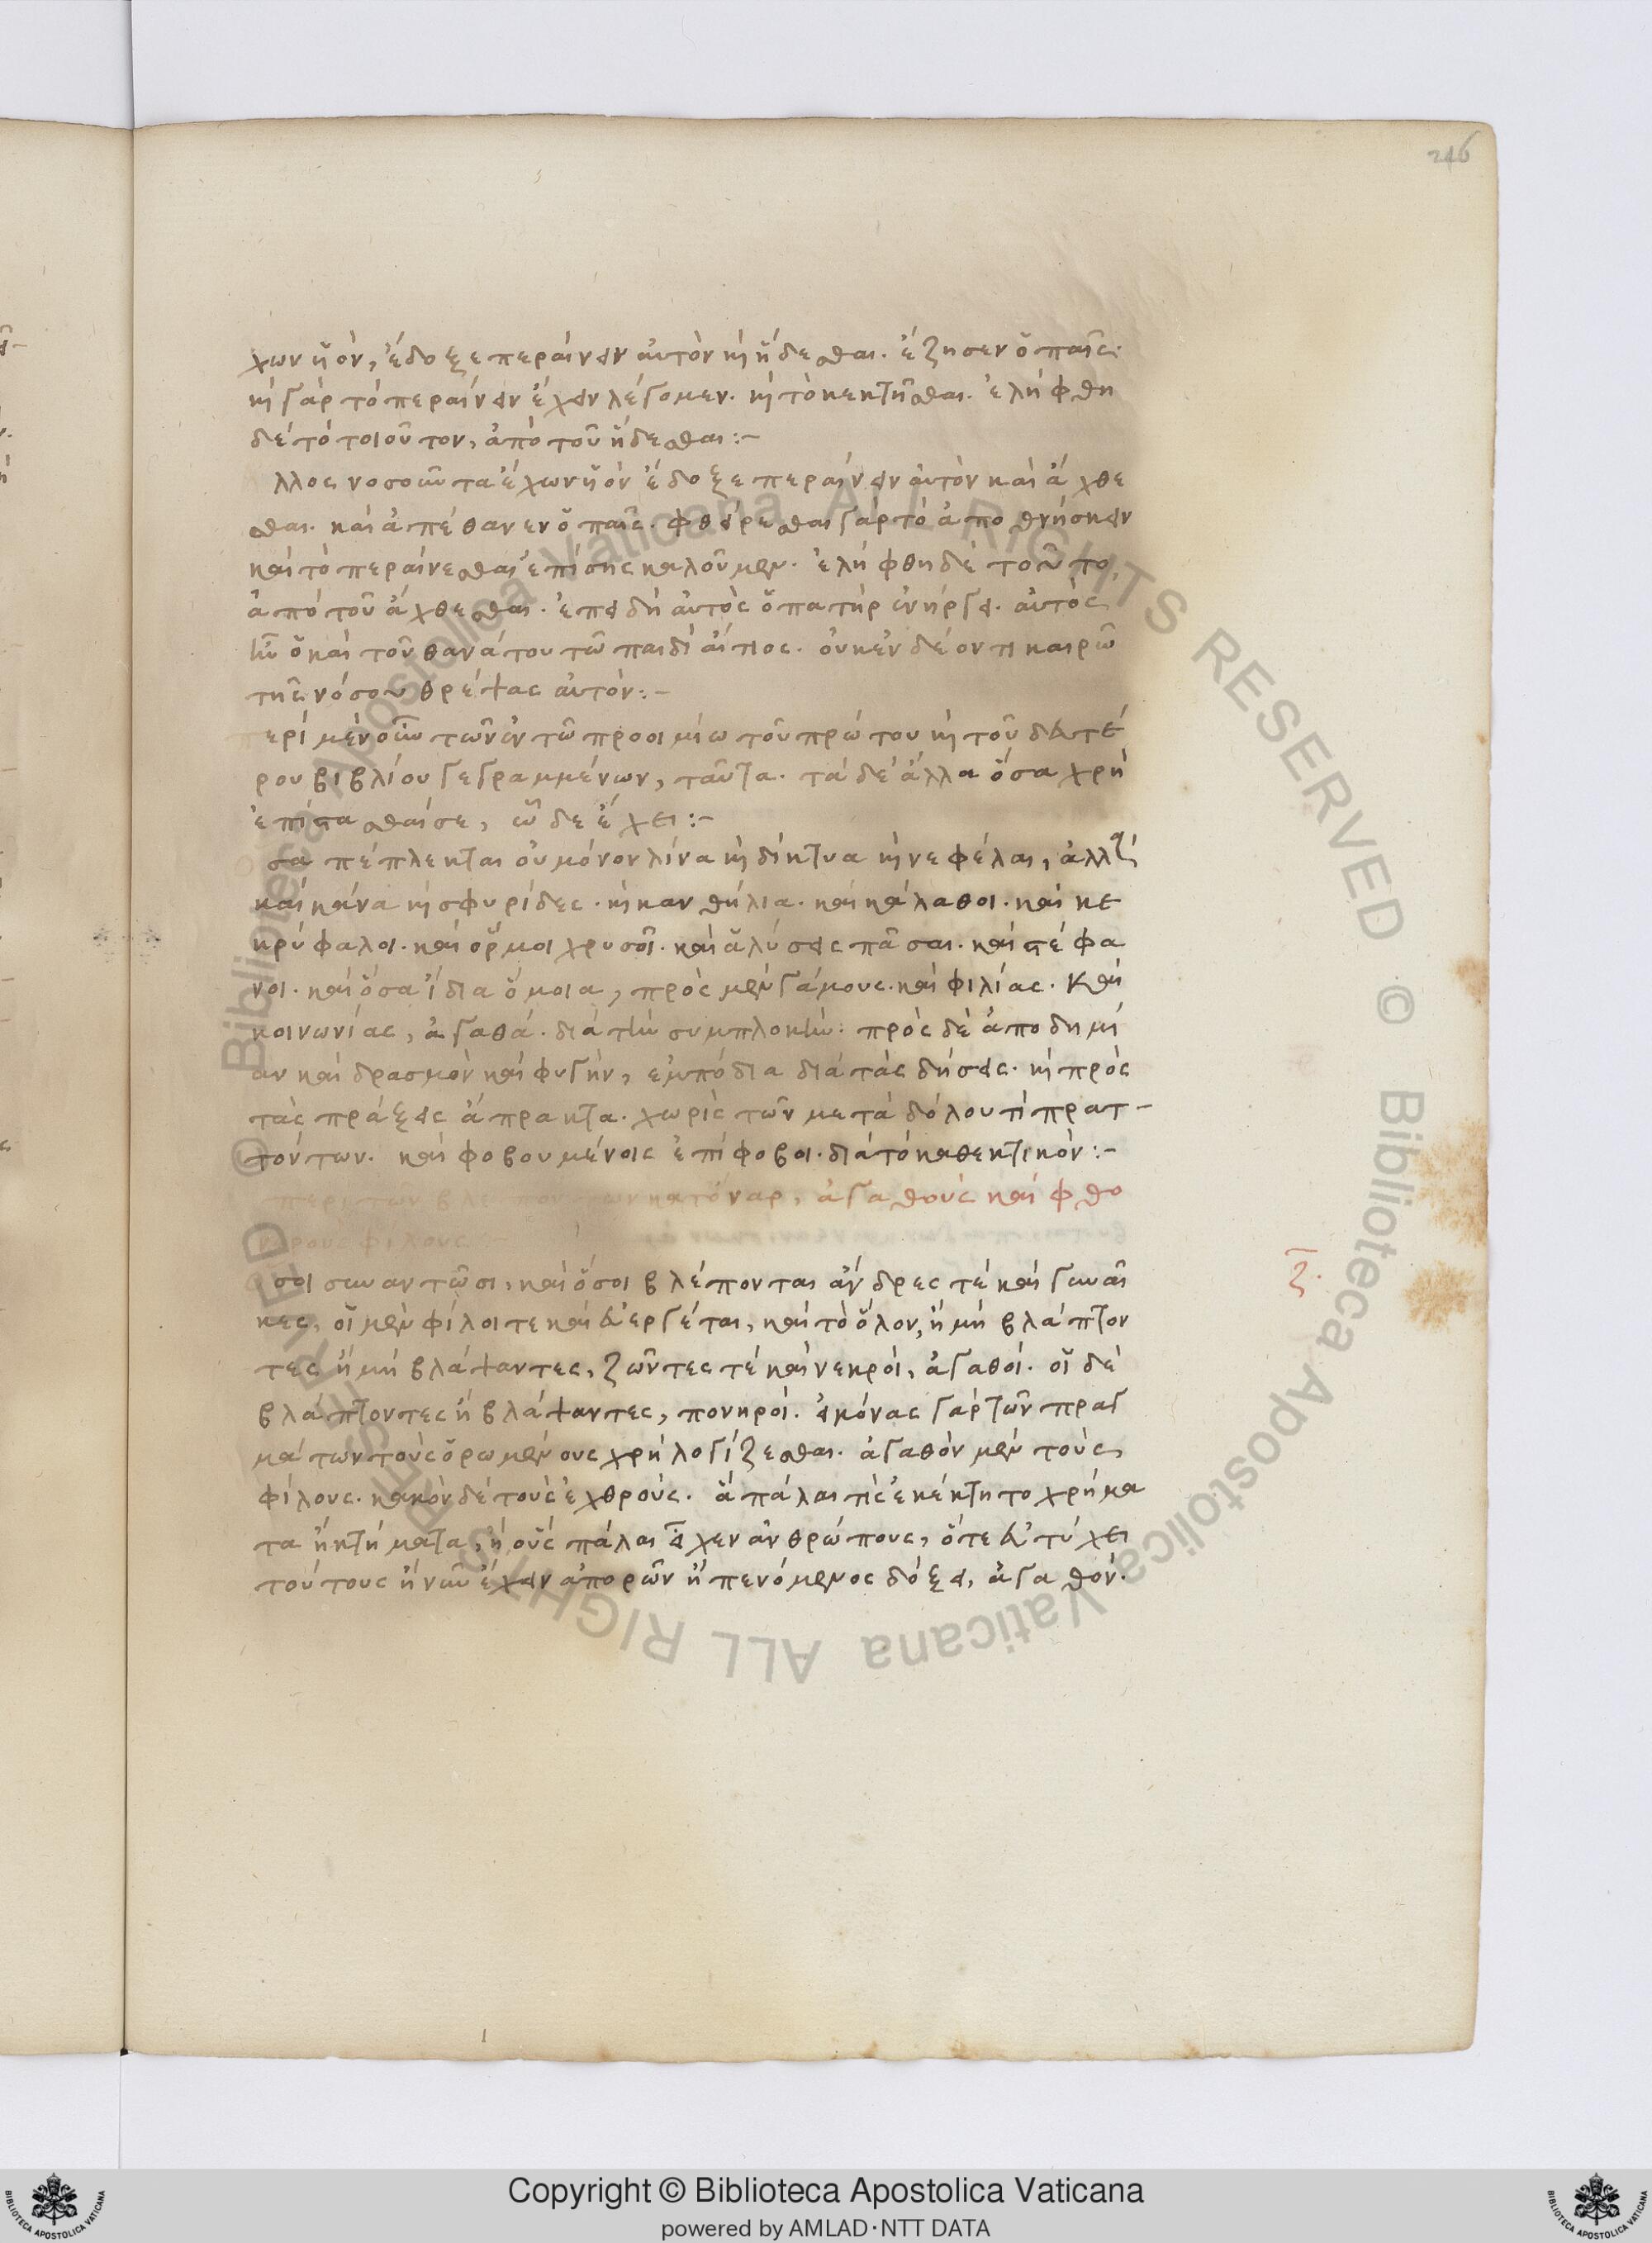 246
χων υἱόν, ἔδοξε περαίνειν αὐτὸν καὶ ἥδεσθαι. ἔζησεν ὁ παῖς.
καὶ γὰρ τὸ περαίνειν ἔχειν λέγομεν. καὶ τὸ κεκτῆσθαι. ἐλήφθη
δὲ τὸ τοιοῦτον, ἀπὸ τοῦ ἥδεσθαι :-
λλος νοσοῦντα ἔχων υἱὸν ἔδοξε περαίνειν αὐτὸν καὶ ἄχθε
σθαι. καὶ ἀπέθανεν ὁ παῖς. φθείρεσθαι γὰρ τὸ ἀποθνήσκειν
καὶ τὸ περαίνεσθαι ἐπίσης καλοῦμεν. ἐλήφθη δὲ τοῦτο,
ἀπὸ τοῦ ἄχθεσθαι. ἐπειδὴ αὐτὸς ὁ πατὴρ ἐνήργει. αὐτὸς
ἦν ὁ καὶ τοῦ θανάτου τῶ παιδὶ αἴτιος. οὐκ ἐν δέοντι καιρῶ
τῆς νόσου θρέψας αὐτόν :-
περὶ μὲν οὖν τῶν ἐν τῶ προοιμίω τοῦ πρώτου καὶ τοῦ δευτέ
ρου βιβλίου γεγραμμένων, ταῦτα. τὰ δὲ ἄλλα ὅσα χρὴ
ἐπίστασθαί σε, ὧδε ἔχει :-
Οσα πέπλεκται οὐ μόνον λίνα καὶ δίκτυα καὶ νεφέλαι, ἀλλὰ
καὶ κάνα καὶ σφυρίδες. καὶ κανθήλια. καὶ κάλαθοι. καὶ κε
κρύφαλοι. καὶ ὅρμοι χρυσοῖ. καὶ ἁλύσεις πᾶσαι. καὶ στέφα
νοι. καὶ ὅσα ἴδια ὅμοια, πρὸς μὲν γάμους. καὶ φιλίας. καὶ
κοινωνίας, ἀγαθά. διὰ τὴν συμπλοκήν: πρὸς δὲ ἀποδημί
αν καὶ δρασμὸν καὶ φυγήν, ἐμπόδια διὰ τὰς δήσεις. καὶ πρὸς
τὰς πράξεις ἄπρακτα. χωρὶς τῶν μετὰ δόλου τί πρατ-
τόντων. καὶ φοβουμένοις ἐπίφοβοι. διὰ τὸ καθεκτικόν :-
περὶ τῶν βλεπόντων κατόναρ, ἀγαθοὺς καὶ φθο
νεροὺς φίλους
Οσοι συναντῶσι, καὶ ὅσοι βλέπονται ἄνδρες τὲ καὶ γυναῖ
κες, οἱ μὲν φίλοι τε καὶ εὐεργέται, καὶ τὸ ὅλον, ἢ μὴ βλάπτον
τες ἢ μὴ βλάψαντες, ζῶντες τὲ καὶ νεκροί, ἀγαθοί. οἱ δὲ
βλάπτοντες ἢ βλάψαντες, πονηροί. εἰκόνας γὰρ τῶν πραγ
μάτων τοὺς ὁρωμένους χρὴ λογίζεσθαι. ἀγαθὸν μὲν τοὺς
φίλους. κακὸν δὲ τοὺς ἐχθρούς. ἃ πάλαι τὶς ἐκέκτητο χρήμα
τα ἢ κτήματα, ἢ οὓς πάλαι εἶχεν ἀνθρώπους, ὅτε εὐτύχει
τούτους ἢ νῦν ἔχειν ἀπορῶν ἢ πενόμενος δόξει, ἀγαθόν.
ζ.
Copyright © Biblioteca Apostolica Vaticana
powered by AMLAD·NTT DATA